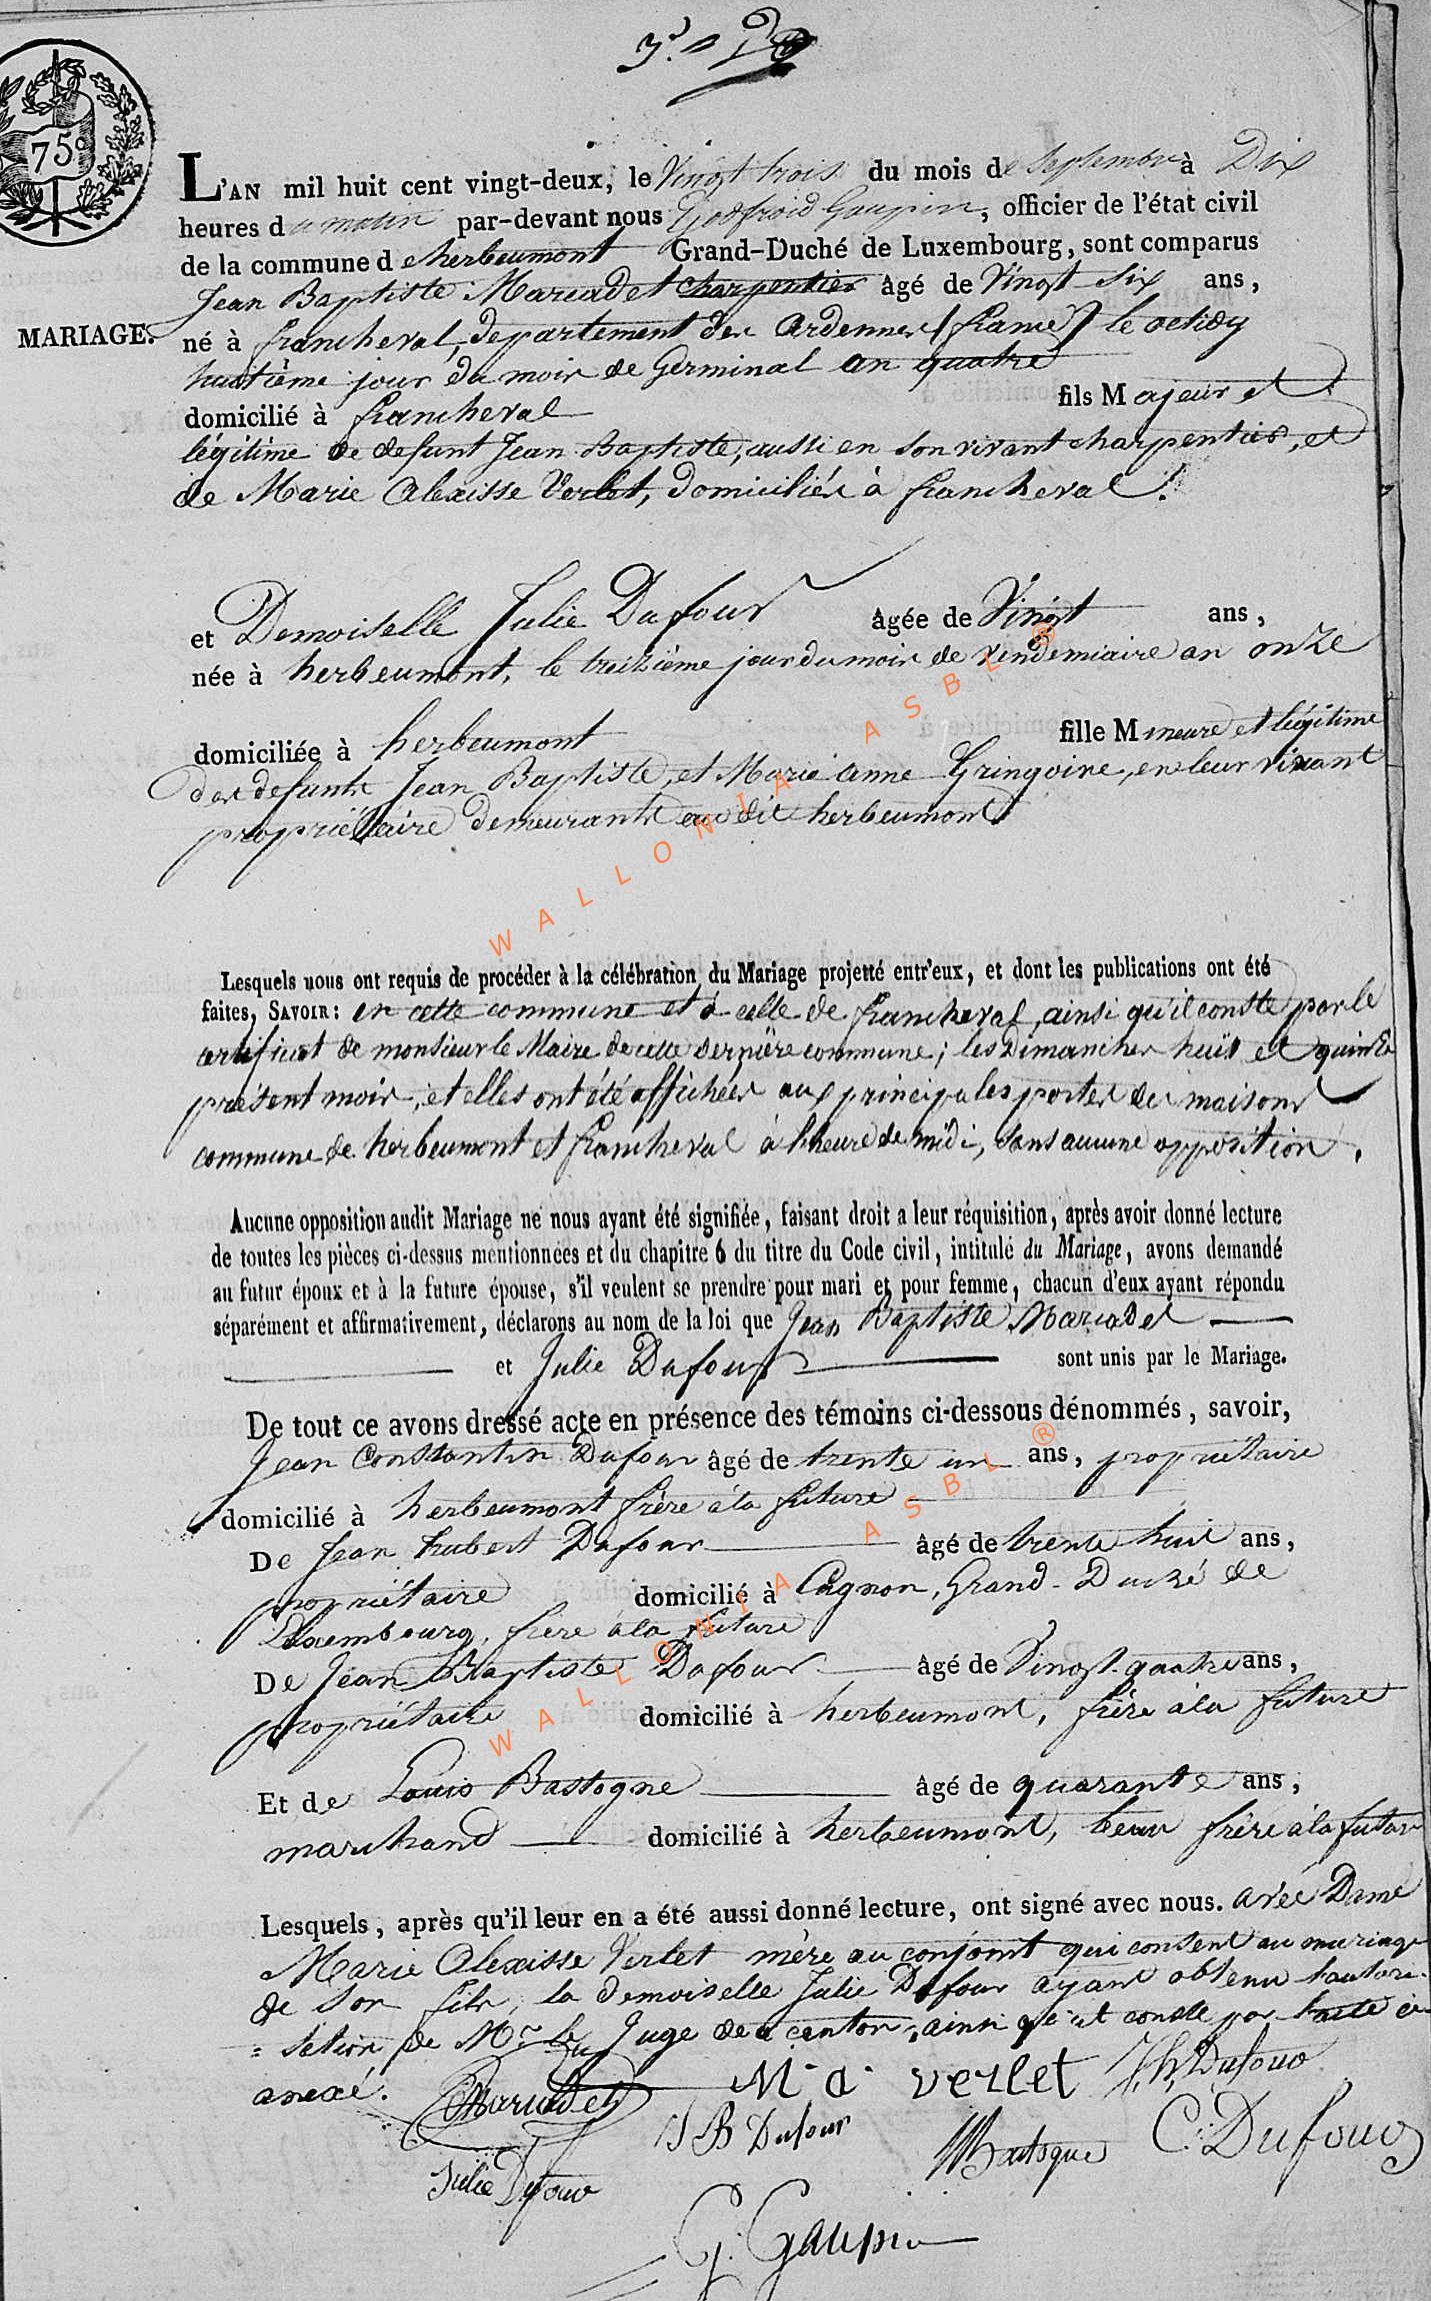 75c
L'AN mil huit cent vingt-deux, le Vingt trois du mois de Septembre à Dix
heures du matin par-devant nous Godfroid Gaupin, officier de l'état civil
de la commune de herbeumont Grand-Duché de Luxembourg, sont comparus
Jean Baptiste Mariadet charpentier âgé de Vingt Six ans,
MARIAGE.
né à francheval, departement des Ardennes (france) le octidy
huitième jour du mois de Germinal an quatre
domicilié à francheval fils Majeur et
légitime de defunt Jean Baptiste, aussi en Son vivant charpentier, et
de Marie Alexisse Verlet, domiciliés à francheval.
et Demoiselle Julie Dufour âgée de Vingt ans,
née à herbeumont, le treizième jour du mois de vendemiaire an onze
domiciliée à herbeumont fille Mineure et légitime
des defunts Jean Baptiste, et Marie Anne Gringoire, en leur vivant
propriétaire demeurants au dit herbeumont
Lesquels nous ont requis de procéder à la célébration du Mariage projetté entr'eux, et dont les publications ont été
faites, SAVOIR: en cette commune et à celle de francheval, ainsi qu'il conste par le
certificat de monsieur le Maire de cette dernière commune; les Dimanches huit et quinze
présent mois, et elles ont été affichées aux principales portes des maisons
commune de herbeumont et francheval à l'heure de midi, sans aucune opposition.
Aucune opposition audit Mariage ne nous ayant été signifiée, faisant droit a leur réquisition, après avoir donné lecture
de toutes les pièces ci-dessus mentionnées et du chapitre 6 du titre du Code civil, intitulé du Mariage, avons demandé
au futur époux et à la future épouse, s'il veulent se prendre pour mari et pour femme, chacun d'eux ayant répondu
séparément et affirmativement, déclarons au nom de la loi que Jean Baptiste Mariadet
et Julie Dufour sont unis par le Mariage.
De tout ce avons dressé acte en présence des témoins ci-dessous dénommés, savoir,
Jean Constantin Dufour âgé de trente un ans, propriétaire
domicilié à herbeumont frère à la future
De Jean hubert Dufour âgé de trente huit ans,
propriétaire domicilié à Cugnon, Grand-Duché de
Luxembourg, frère à la future
De Jean Baptiste Dufour âgé de Vingt-quatre ans,
propriétaire domicilié à herbeumont, frère à la future
Et de Louis Bastogne âgé de quarante ans,
marchand domicilié à herbeumont, beau frère à la future
Lesquels, après qu'il leur en a été aussi donné lecture, ont signé avec nous. avec Dame
Marie Alexisse Verlet mère au conjoint qui consent au mariage
de Son fils, la demoiselle Julie Dufour ayant obtenu l'autori-
=sation de Mr le Juge de ce canton, ainsi qu'il conste par l'acte ci-
anexé.
Mariadet M. a. verlet J, h, Dufour
J B Dufour Bastogne C. Dufour
Julie Dufour
G. Gaupin
WALLONIA ASBL ®
WALLONIA ASBL ®